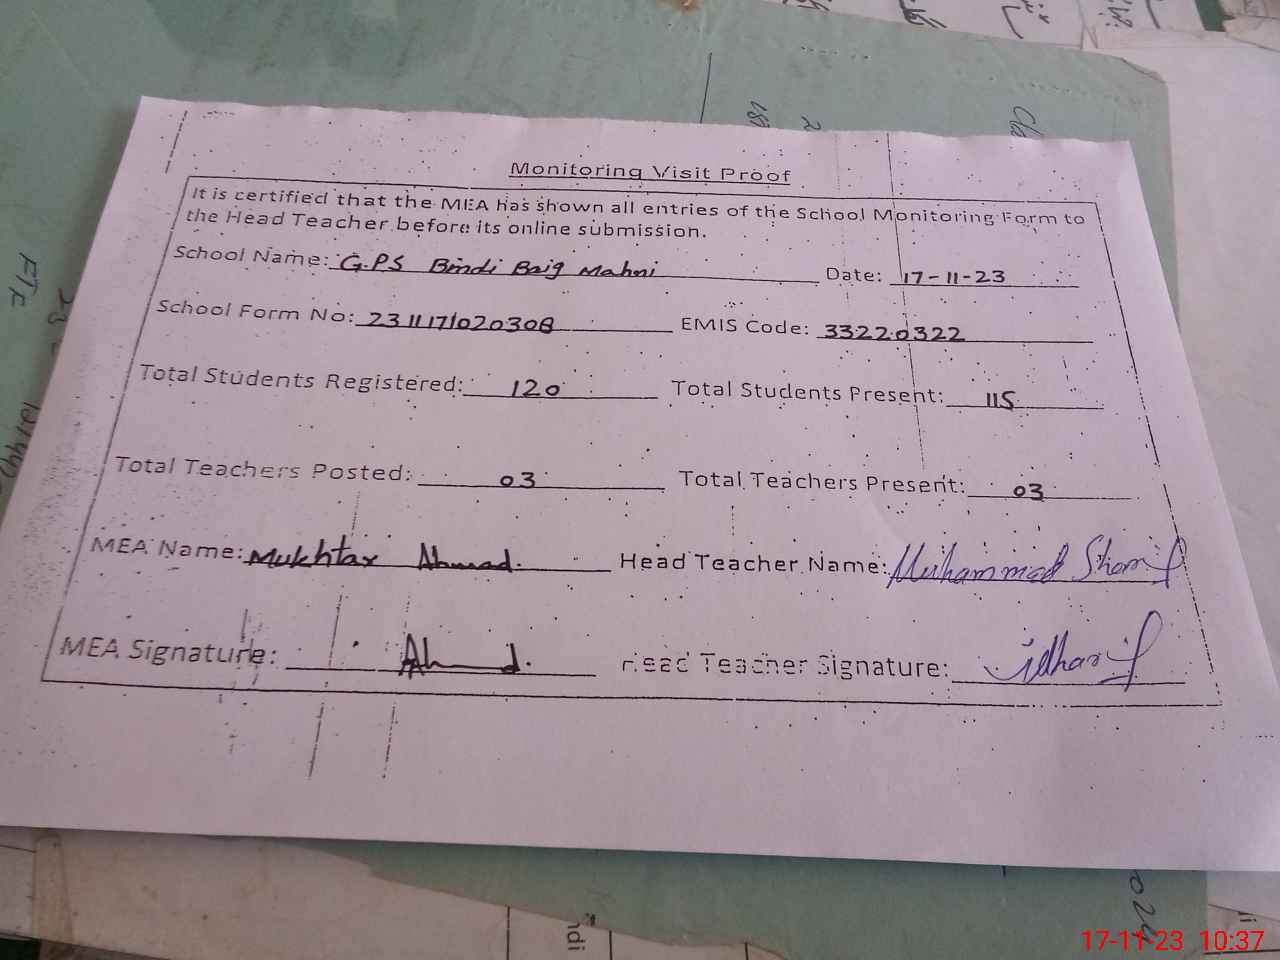 Monitoring Visit Proof
It is certified that the MEA has shown all entries of the School Monitoring Form to
the Head Teacher before its online submission.
School Name: G.P.S Bindi Baig Mahni Date: 17-11-23
School Form No: 2311171020308 EMIS Code: 33220322
Total Students Registered: 120 Total Students Present: 115
Total Teachers Posted: 03 Total Teachers Present: 03
MEA Name: Mukhtar Ahmad. Head Teacher Name: Muhammad Sharif
MEA Signature: Ahmad. Head Teacher Signature:
ndi
17-11-23 10:37